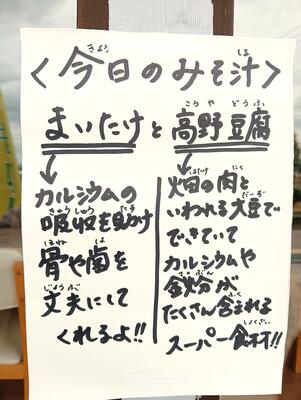 〈今日のみそ汁〉
まいたけと高野豆腐
カルシウムの
吸収を助け
骨や歯を
丈夫にして
くれるよ!!
畑の肉と
いわれる大豆で
できていて
カルシウムや
鉄分が
たくさん含まれる
スーパー食材!!